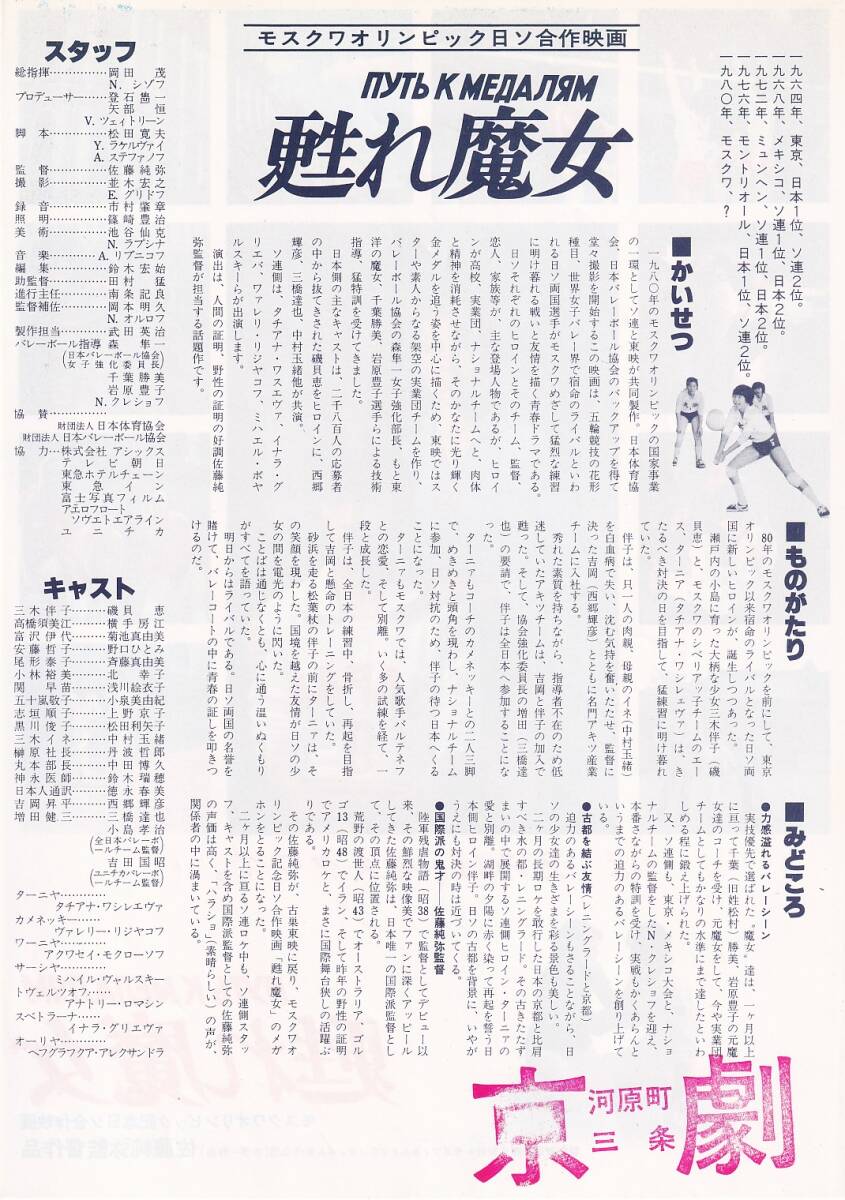 モスクワオリンピック日ソ合作映画
ПУТЬ К МЕДАЛЯМ
甦れ魔女
一九六四年、東京、日本1位、ソ連2位。
一九六八年、メキシコ、ソ連1位、日本2位。
一九七二年、ミュンヘン、ソ連1位、日本2位。
一九七六年、モントリオール、日本1位、ソ連2位。
一九八〇年、モスクワ、?
■かいせつ
一九八〇年のモスクワオリンピックの国家事業
の一環としてソ連と東映が共同製作。日本体育協
会、日本バレーボール協会のバックアップを得て
堂々撮影を開始するこの映画は、五輪競技の花形
種目、世界女子バレー界で宿命のライバルといわ
れる日ソ両国選手がモスクワめざして猛烈な練習
に明け暮れる戦いと友情を描く青春ドラマである。
日ソそれぞれのヒロインとそのチーム、監督、
恋人、家族等が、主な登場人物であるが、ヒロイ
ンが高校、実業団、ナショナルチームへと、肉体
と精神を消耗させながら、そのかなたに光り輝く
金メダルを追う姿を中心に描くため、東映ではス
ターや素人からなる架空の実業団チームを作り、
バレーボール協会の森隼一女子強化部長、もと東
洋の魔女、千葉勝美、岩原豊子選手らによる技術
指導、猛特訓を受けてきました。
日本側の主なキャストは、二千八百人の応募者
の中から抜てきされた磯貝恵をヒロインに、西郷
輝彦、三橋達也、中村玉緒他が共演。
ソ連側は、タチアナ・ワスエヴァ、イナラ・グ
リエバ、ワァレリ・リジヤコフ、ミハエル・ボヤ
ルスキーらが出演します。
演出は、人間の証明、野性の証明の好調佐藤純
弥監督が担当する話題作です。
■ものがたり
80年のモスクワオリンピックを前にして、東京
オリンピック以来宿命のライバルとなった日ソ両
国に新しいヒロインが、誕生しつつあった。
瀬戸内の小島に育った大柄な少女三木伴子(磯
貝恵)と、モスクワのシベリアッ子チームのエー
ス、ターニア(タチアナ・ワシレェヴァ)は、き
たるべき対決の日を目指して、猛練習に明け暮れ
ていた。
伴子は、只一人の肉親、母親のイネ(中村玉緒)
を白血病で失い、沈む気持を奮いたたせ、監督に
決った吉岡(西郷輝彦)とともに名門アキツ産業
チームに入社する。
秀れた素質を持ちながら、指導者不在のため低
迷していたアキツチームは、吉岡と伴子の加入で
甦った。そして、協会強化委員長の増田(三橋達
也)の要請で、伴子は全日本へ参加することにな
った。
ターニアもコーチのカメネッキーとの二人三脚
で、めきめきと頭角を現わし、ナショナルチーム
に参加、日ソ対抗のため、伴子の待つ日本へくる
ことになった。
ターニアもモスクワでは、人気歌手バルテネフ
との恋愛、そして別離。いく多の試練を経て、一
段と成長した。
伴子は、全日本の練習中、骨折し、再起を目指
して吉岡と懸命のトレーニングをしていた。
砂浜を走る松葉杖の伴子の前にターニアは、そ
の笑顔を現わした。国境を越えた友情が日ソの少
女の間を電光のように閃いた。
ことばは通じなくとも、心に通う温いぬくもり
がすべてを語っていた。
明日からはライバルである。日ソ両国の名誉を
賭けて、バレーコートの中に青春の証しを叩きつ
けるのだ。
■みどころ
●力感溢れるバレーシーン
実技優先で選ばれた〝魔女〟達は、一ヶ月以上
に亘って千葉(旧姓松村)勝美、岩原豊子の元魔
女達のコーチを受け、元魔女をして、今や実業団
チームとしてもかなりの水準にまで達したといわ
しめる程に鍛え上げられた。
又、ソ連側も、東京、メキシコ大会と、ナショ
ナルチームの監督をしたN・クレショフを迎え、
本番さながらの特訓を受け、実戦もかくあらんと
いうまでの迫力のあるバレーシーンを創り上げて
いる。
●古都を結ぶ友情(レニングラードと京都)
迫力のあるバレーシーンもさることながら、日
ソの少女達の生きざまを彩る景色も美しい。
二ヶ月の長期ロケを敢行した日本の京都と比肩
すべき水の都・レニングラード。その古きたたず
まいの中で展開するソ連側ヒロイン・ターニアの
愛と別離。湖畔の夕陽に赤く染って再起を誓う日
本側ヒロイン伴子。日ソの古都を背景に、いやが
うえにも対決の時は近づいてくる。
●国際派の鬼才──佐藤純弥監督
陸軍残虐物語(昭38)で監督としてデビュー以
来、その鮮烈な映像美でファンに深くアッピール
してきた佐藤純弥は、日本唯一の国際派監督とし
て、その頂点に位置される。
荒野の渡世人(昭43)でオーストラリア、ゴル
ゴ13(昭48)でイラン、そして昨年の野性の証明
でアメリカロケと、まさに国際舞台狭しの活躍ぶ
りである。
その佐藤純弥が、古巣東映に戻り、モスクワオ
リンピック記念日ソ合作映画「甦れ魔女」のメガ
ホンをとることになった。
二ヶ月以上に亘るソ連ロケ中も、ソ連側スタッ
フ、キャストを含め国際派監督としての佐藤純弥
の声価は高く、「ハラショ」(素晴らしい)の声が、
関係者の中に渦まいている。
スタッフ
総指揮……岡田茂
N.シゾフ
プロデューサー……登石雋一
矢部恒
V.ツェィトリーン
脚本……松田寛夫
Y.ラケルヴァイ
A.ステファノフ
監督……佐藤純弥
撮影……並木宏之
E.グリドフ
録音……市村肇章
照明……篠崎豊治
美術……池谷仙克
N.ラプシナ
音楽……A.リブニコフ
編集……鈴木宏始
助監督……田村猛
進行主任……南條記良
監督補佐……岡本明久
N.オルロフ
製作担当……武田英治
バレーボール指導 森隼一
(日本バレーボール協会 女子強化委員長)
千葉勝美
岩原豊子
N.クレショフ
協賛……
財団法人日本体育協会
財団法人日本バレーボール協会
協力…株式会社アシックス
テレビ朝日
東急ホテルチェーン
東急イン
富士写真フィルム
アエロフロート
ソヴエトエアライン
ユニチカ
キャスト
三木伴子……磯貝恵
高橋須美江……横手房江
富沢伊代……菊池真由美
安藤哲子……野口ひとみ
尾形泰子……斉藤真由美
小林裕美……北幸子
関早苗……浅川絵衣子
五十嵐敬子……小泉美由紀
志垣順子……上野京子
黒川俊子……松田利矢子
三木イネ……中村玉緒
榊原社長……丹波哲郎
丸本部長……中田博久
神永医師……鈴木瑞穂
日本人通訳……徳永春美
吉岡昇平……西郷輝彦
増田健三……三橋達也
小島孝治
(全日本バレーボールチーム監督)
吉田国昭
(ユニチカバレーボールチーム監督)
ターニヤ……
タチアナ・ワシレエヴァ
カメネッキー……
ヴァレリー・リジヤコフ
ワーニャ……
アクワセイ・モクローソフ
サーシャ……
ミハイル・ヴァルスキー
トヴェルツオフ……
アナトリー・ロマシン
スベトラーナ……
イナラ・グリエヴァ
オーリャ……
ヘフグラフクア・アレクサンドラ
京劇
河原町
三条